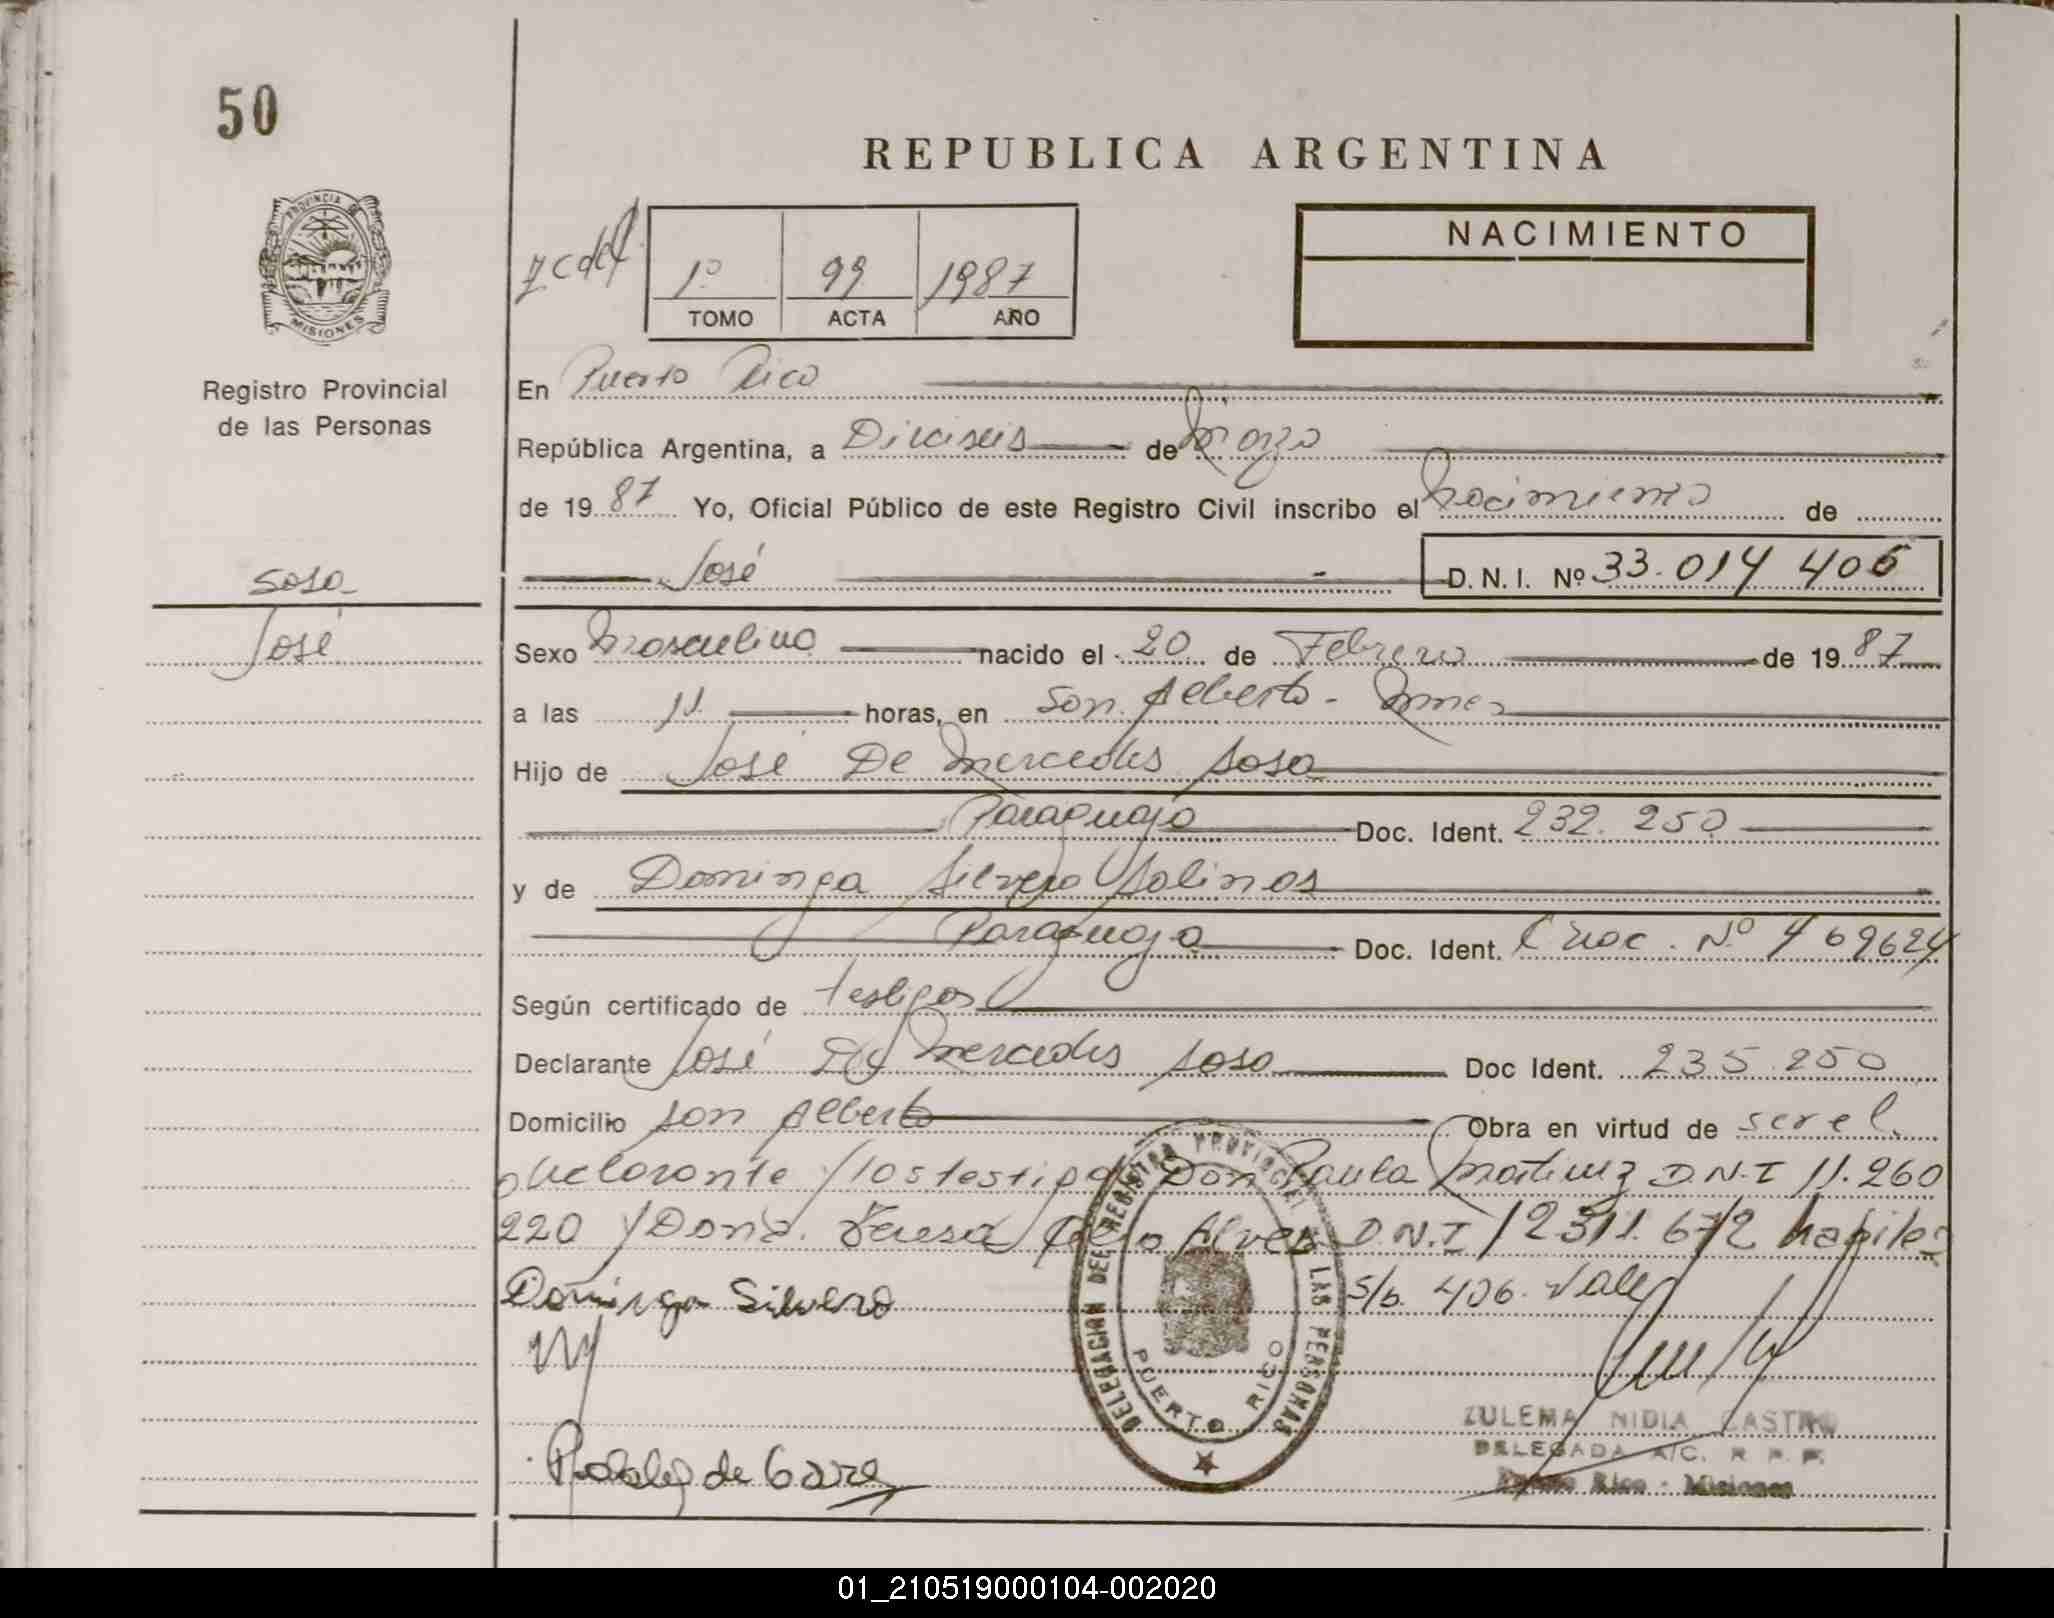 50
REPUBLICA ARGENTINA
PROVINCIA DE
MISIONES
Registro Provincial
de las Personas
1º 99 1987
TOMO ACTA AÑO
NACIMIENTO
En Puerto Rico
República Argentina, a Dieciseis de Marzo
de 1987 Yo, Oficial Público de este Registro Civil inscribo el Nacimiento de
José D.N.I. Nº 33.014 406
Sosa
José
Sexo Masculino nacido el 20 de Febrero de 1987
a las 11 horas, en San Alberto - Mnes
Hijo de José De Mercedes Sosa
Paraguayo Doc. Ident. 232.250
y de Dominga Silvero Salinas
Paraguaya Doc. Ident. Nº 469624
Según certificado de testigos
Declarante José De Mercedes Sosa Doc Ident. 235.250
Domicilio San Alberto Obra en virtud de ser el
declarante y los testigos Don Paula Martinez D.N.I 11.260
220 y Doña Teresa Alves D.N.I 12311.672 habiles
Dominga Silvero s/b. 406. Vale
DELEGACION DEL REGISTRO PROVINCIAL DE LAS PERSONAS
PUERTO RICO
ZULEMA NIDIA CASTRO
DELEGADA A/C. R. P. P.
Puerto Rico - Misiones
01_210519000104-002020